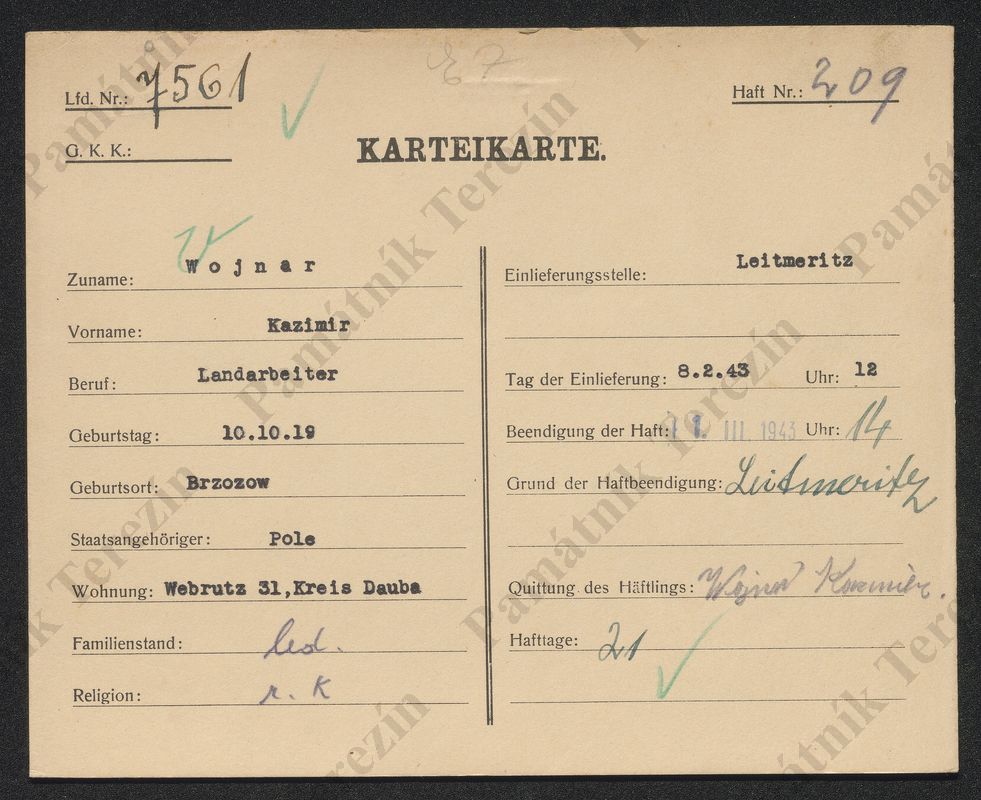 E 7
Lfd. Nr.: 7561
Haft Nr.: 209
G. K. K.:
KARTEIKARTE.
Zuname: Wojnar
Vorname: Kazimir
Beruf: Landarbeiter
Geburtstag: 10.10.19
Geburtsort: Brzozow
Staatsangehöriger: Pole
Wohnung: Webrutz 31,Kreis Dauba
Familienstand: led.
Religion: r. K
Einlieferungsstelle: Leitmeritz
Tag der Einlieferung: 8.2.43 Uhr: 12
Beendigung der Haft: 1. III. 1943 Uhr: 14
Grund der Haftbeendigung: Leitmeritz
Quittung des Häftlings: Wojnar Kazimier.
Hafttage: 21
Památník Terezín
Památník Terezín
Památník Terezín
Památník Terezín